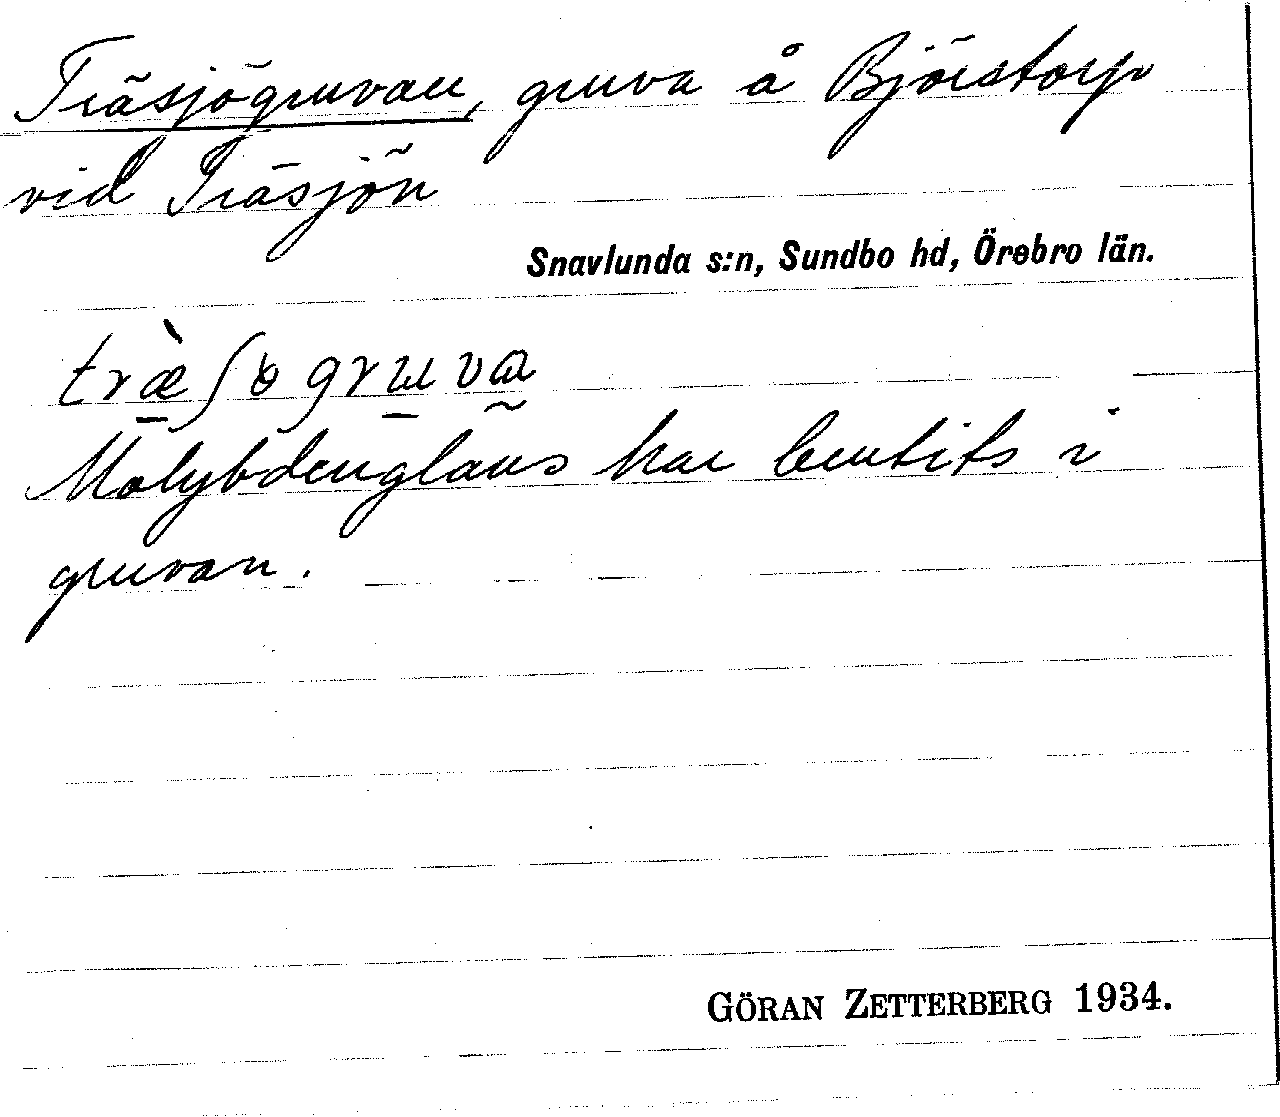 Träsjögruvan, gruva å Björstorp
vid Träsjön
Snavlunda s:n, Sundbo hd, Örebro län.
Molybdenglans har brutits i
gruvan.
GÖRAN ZETTERBERG 1934.